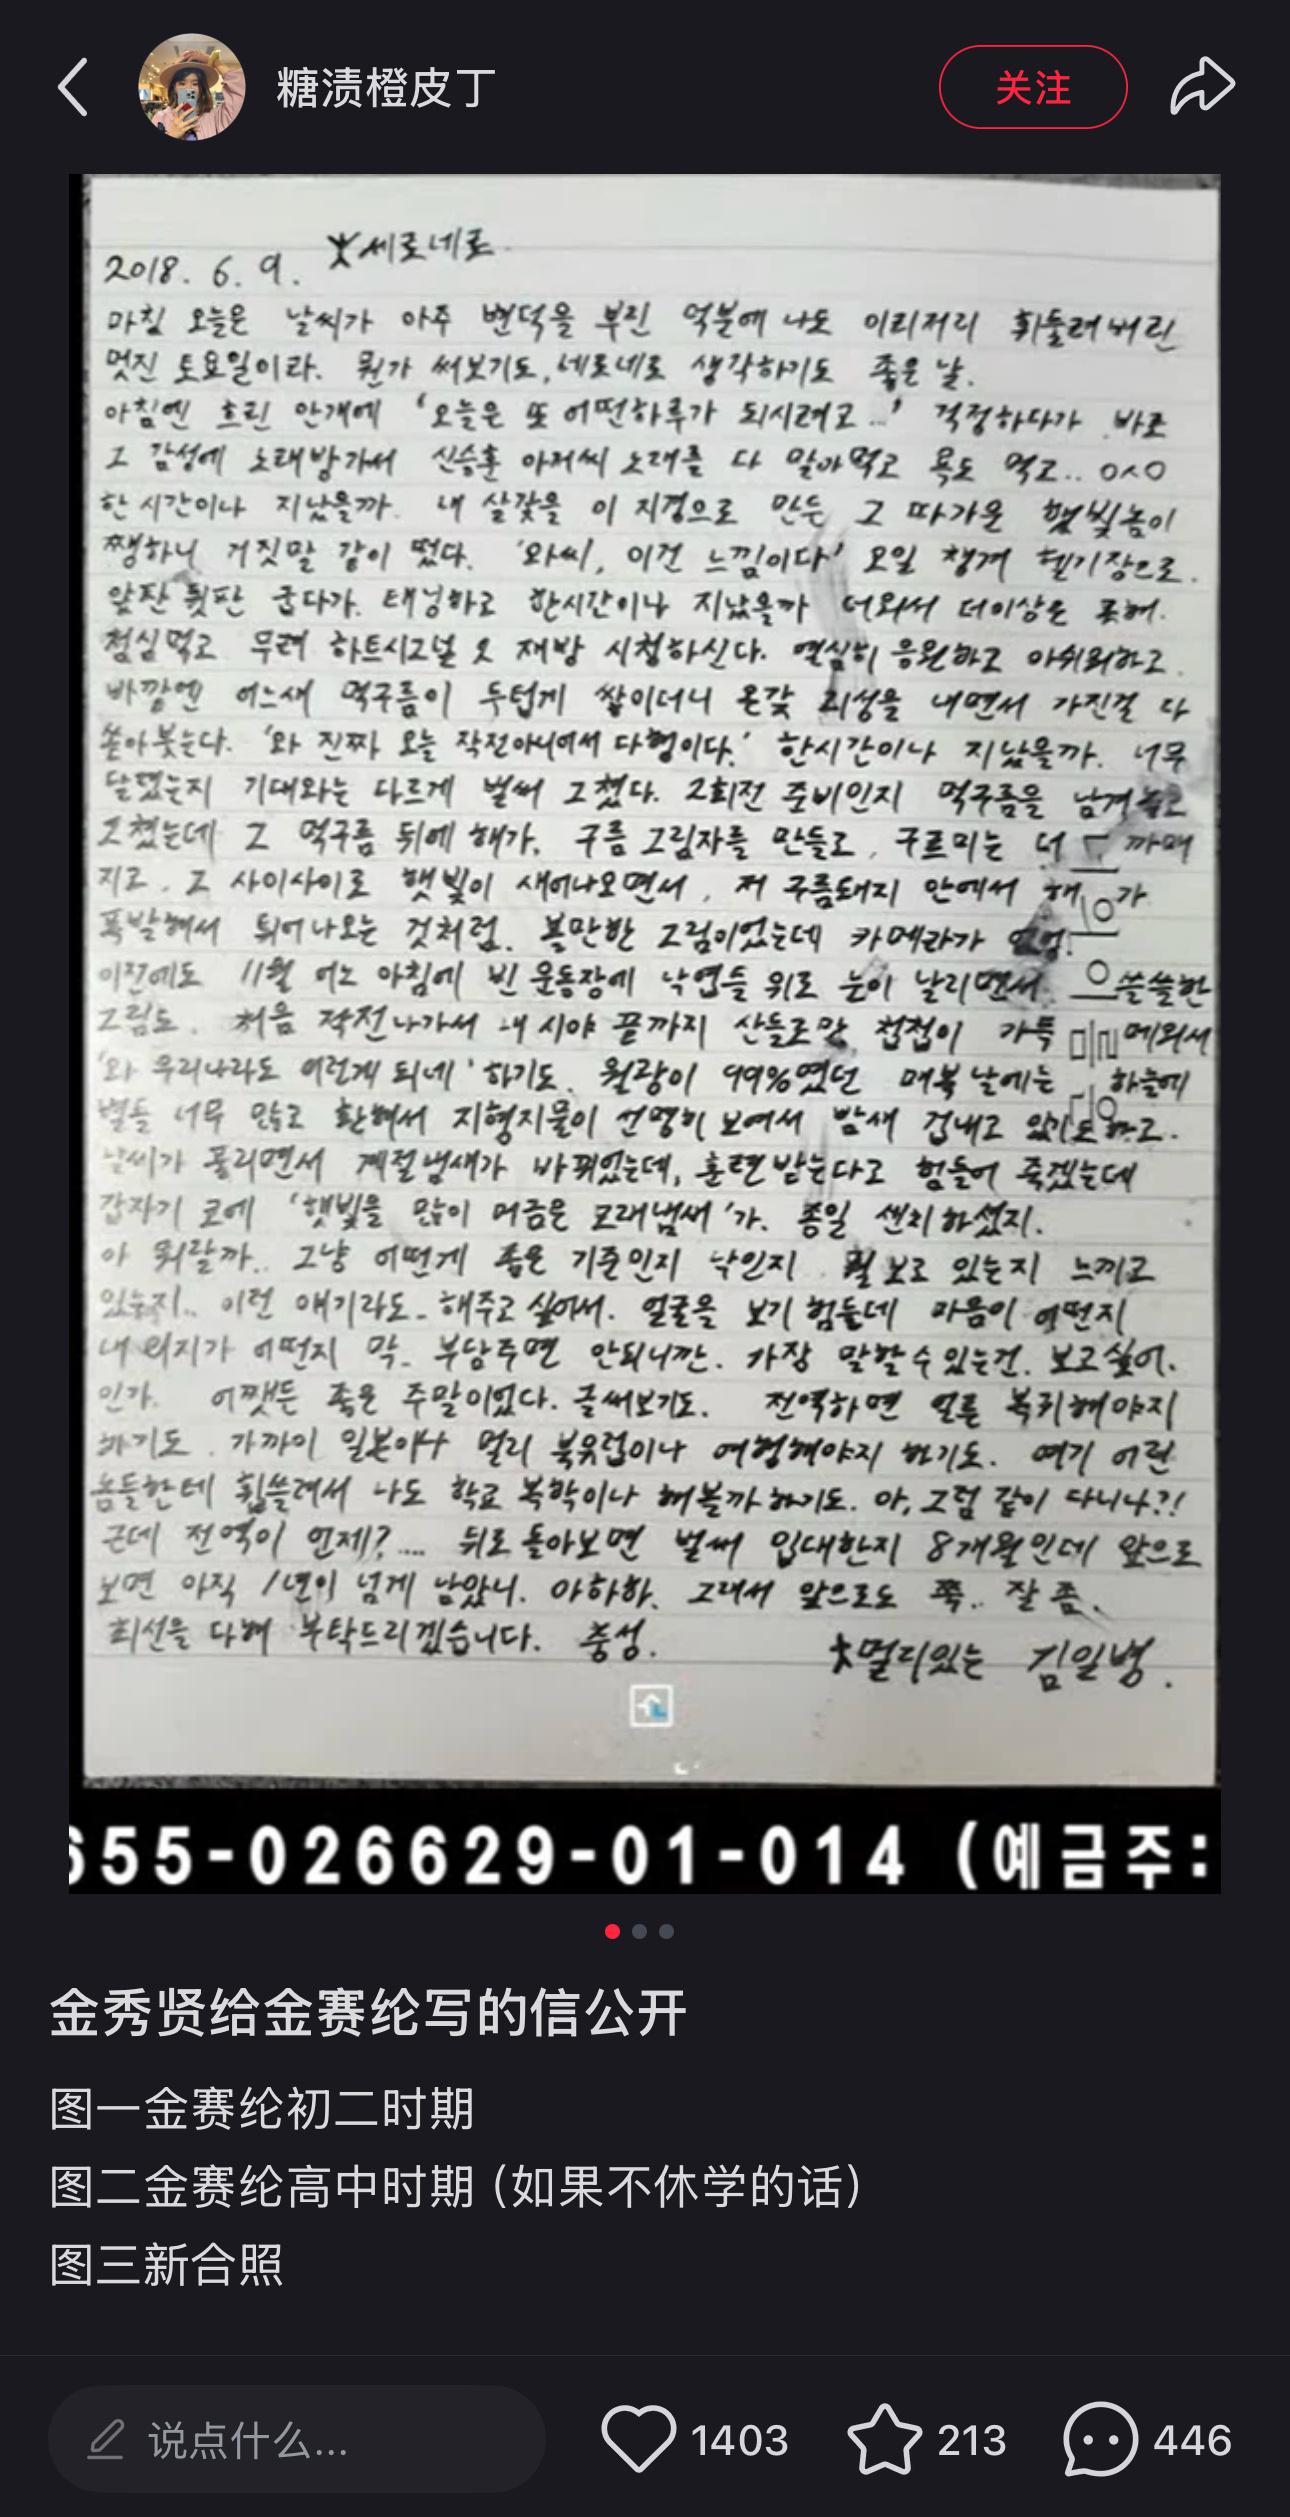 糖渍橙皮丁
关注
2018. 6. 9. 세로네로
마침 오늘은 날씨가 아주 변덕을 부린 덕분에 나도 이리저리 휘둘려버린
멋진 토요일이라. 뭔가 써보기도, 세로네로 생각하기도 좋은 날.
아침엔 흐린 안개에 '오늘은 또 어떤하루가 되시려고...' 걱정하다가 바로
그 감성에 노래방가서 신승훈 아저씨 노래를 다 말아먹고 욕도 먹고..
한 시간이나 지났을까. 내 살갗을 이 지경으로 만든 그 따가운 햇빛놈이
쨍하니 거짓말 같이 떴다. '와씨, 이건 느낌이다' 오일 챙겨 헬기장으로.
앞판 뒷판 굽다가. 태닝하고 한시간이나 지났을까 더워서 더이상은 못해.
점심먹고 무려 하트시그널 2 재방 시청하신다. 열심히 응원하고 아쉬워하고.
바깥엔 어느새 먹구름이 두텁게 쌓이더니 온갖 괴성을 내면서 가진걸 다
쏟아붓는다. '와 진짜 오늘 작전아니여서 다행이다.' 한시간이나 지났을까. 너무
달렸는지 기대와는 다르게 벌써 그쳤다. 2회전 준비인지 먹구름을 남겨놓고
그쳤는데 그 먹구름 뒤에 해가. 구름 그림자를 만들고, 구르미는 더 까매
지고. 그 사이사이로 햇빛이 새어나오면서, 저 구름돼지 안에서 해가
폭발해서 튀어나오는 것처럼. 볼만한 그림이었는데 카메라가
이전에도 11월 어느 아침에 빈 운동장에 낙엽들 위로 눈이 날리면서 쓸쓸한
그림도. 처음 작전나가서 내 시야 끝까지 산들로만 첩첩이 가득 메워서
'와 우리나라도 이런게 되네' 하기도. 월광이 99%였던 매복날에는 하늘에
별들 너무 많고 환해서 지형지물이 선명히 보여서 밤새 겁내고 있기도하고.
날씨가 풀리면서 계절냄새가 바뀌었는데, 훈련받는다고 힘들어 죽겠는데
갑자기 코에 '햇빛을 많이 머금은 모래냄새'가. 종일 센치하셨지.
아 뭐랄까.. 그냥 어떤게 좋은 기준인지 낙인지 뭘 보고 있는지 느끼고
있는지.. 이런 얘기라도.. 해주고 싶어서. 얼굴을 보기 힘들데 마음이 어떤지
내 위치가 어떤지 막. 부담주면 안되니깐. 가장 말할수있는건. 보고싶어.
인가. 어쨋든 좋은 주말이었다. 글써보기도. 전역하면 얼른 복귀해야지
하기도. 가까이 일본이나 멀리 북유럽이나 여행해야지 하기도. 여기 어린
놈들한테 휩쓸려서 나도 학교 복학이나 해볼까하기도. 아, 그럼 같이 다니나?!
근데 전역이 언제?.... 뒤로 돌아보면 벌써 입대한지 8개월인데 앞으로
보면 아직 1년이 넘게 남았니. 아하하. 그래서 앞으로도 쭉.. 잘 좀.
최선을 다해 부탁드리겠습니다. 충성.
멀리있는 김일병.
655-026629-01-014 (예금주:
金秀贤给金赛纶写的信公开
图一金赛纶初二时期
图二金赛纶高中时期（如果不休学的话）
图三新合照
说点什么...
1403
213
446